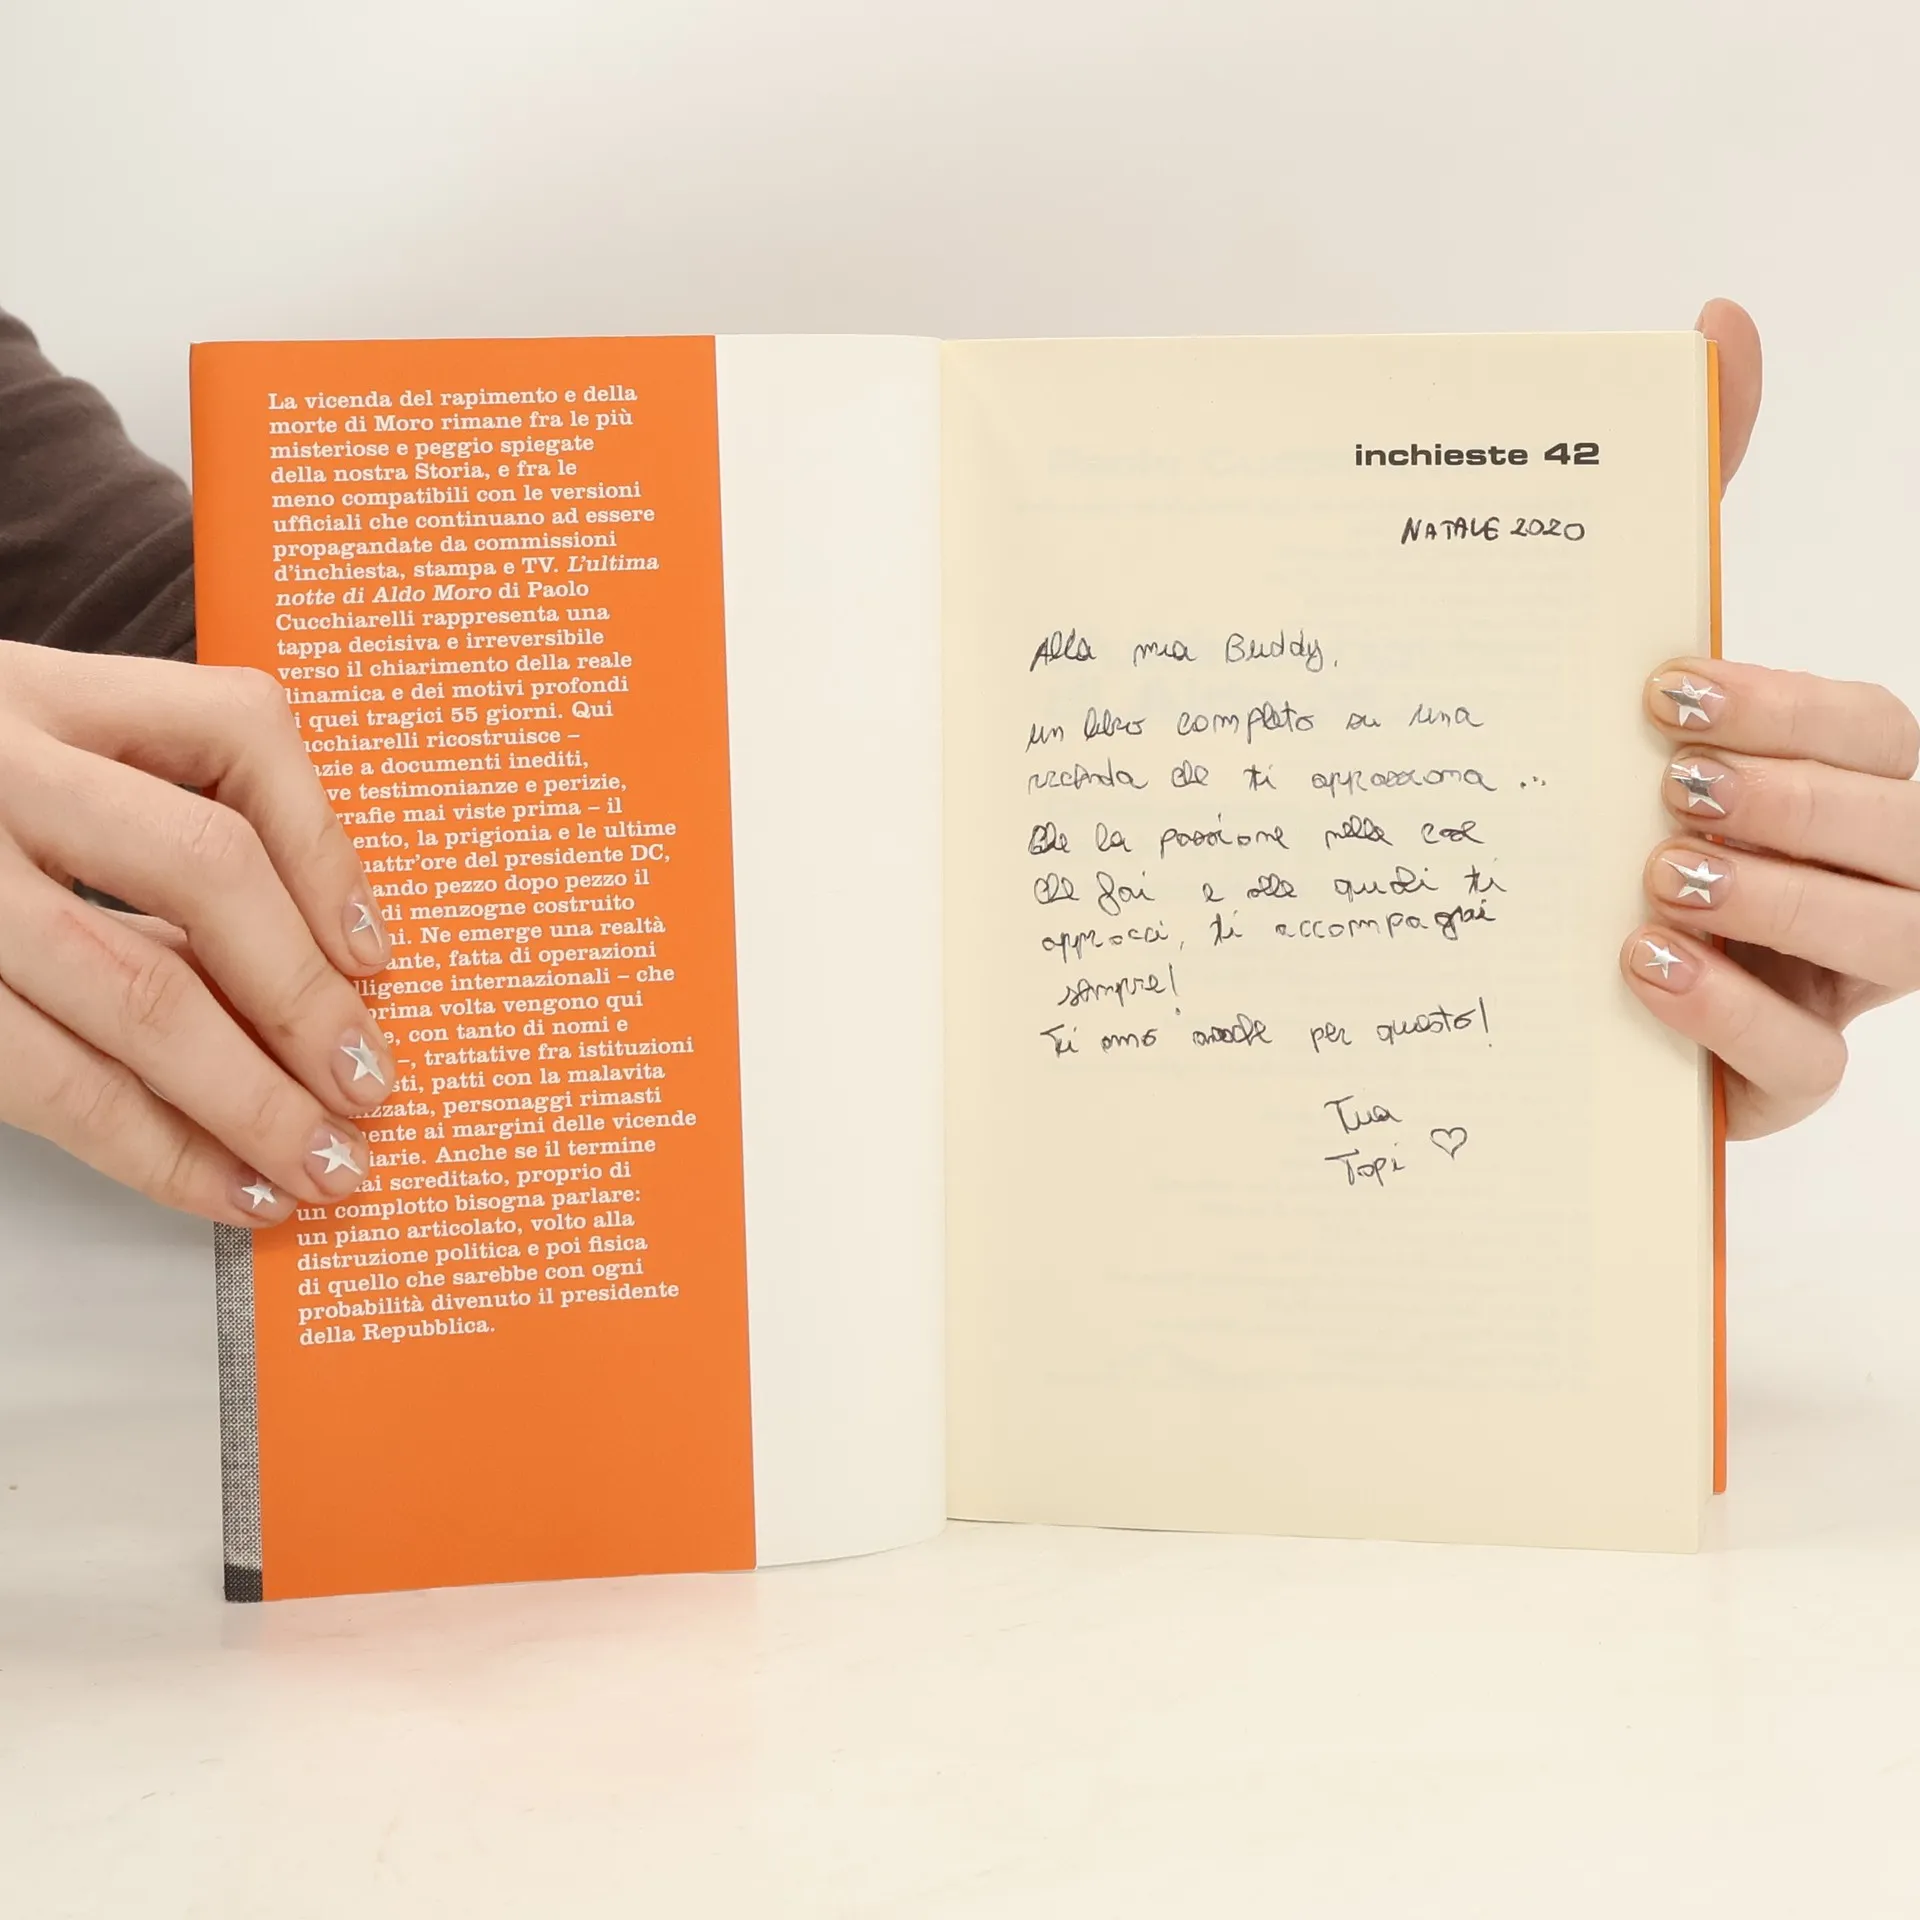 La vicenda del rapimento e della
morte di Moro rimane fra le più
misteriose e peggio spiegate
della nostra Storia, e fra le
meno compatibili con le versioni
ufficiali che continuano ad essere
propagandate da commissioni
d'inchiesta, stampa e TV. L'ultima
notte di Aldo Moro di Paolo
Cucchiarelli rappresenta una
tappa decisiva e irreversibile
verso il chiarimento della reale
dinamica e dei motivi profondi
i quei tragici 55 giorni. Qui
ucchiarelli ricostruisce –
azie a documenti inediti,
ve testimonianze e perizie,
rafie mai viste prima – il
ento, la prigionia e le ultime
uattr'ore del presidente DC,
ando pezzo dopo pezzo il
di menzogne costruito
ni. Ne emerge una realtà
ante, fatta di operazioni
lligence internazionali – che
prima volta vengono qui
e, con tanto di nomi e
–, trattative fra istituzioni
sti, patti con la malavita
izzata, personaggi rimasti
mente ai margini delle vicende
iarie. Anche se il termine
ai screditato, proprio di
un complotto bisogna parlare:
un piano articolato, volto alla
distruzione politica e poi fisica
di quello che sarebbe con ogni
probabilità divenuto il presidente
della Repubblica.
inchieste 42
NATALE 2020
Alla mia Buddy,
un libro completo su una
vicenda che ti appassiona ...
Che la passione nelle cose
che fai e alle quali ti
approcci, ti accompagni
sempre!
Ti amo anche per questo!
Tua
Topi